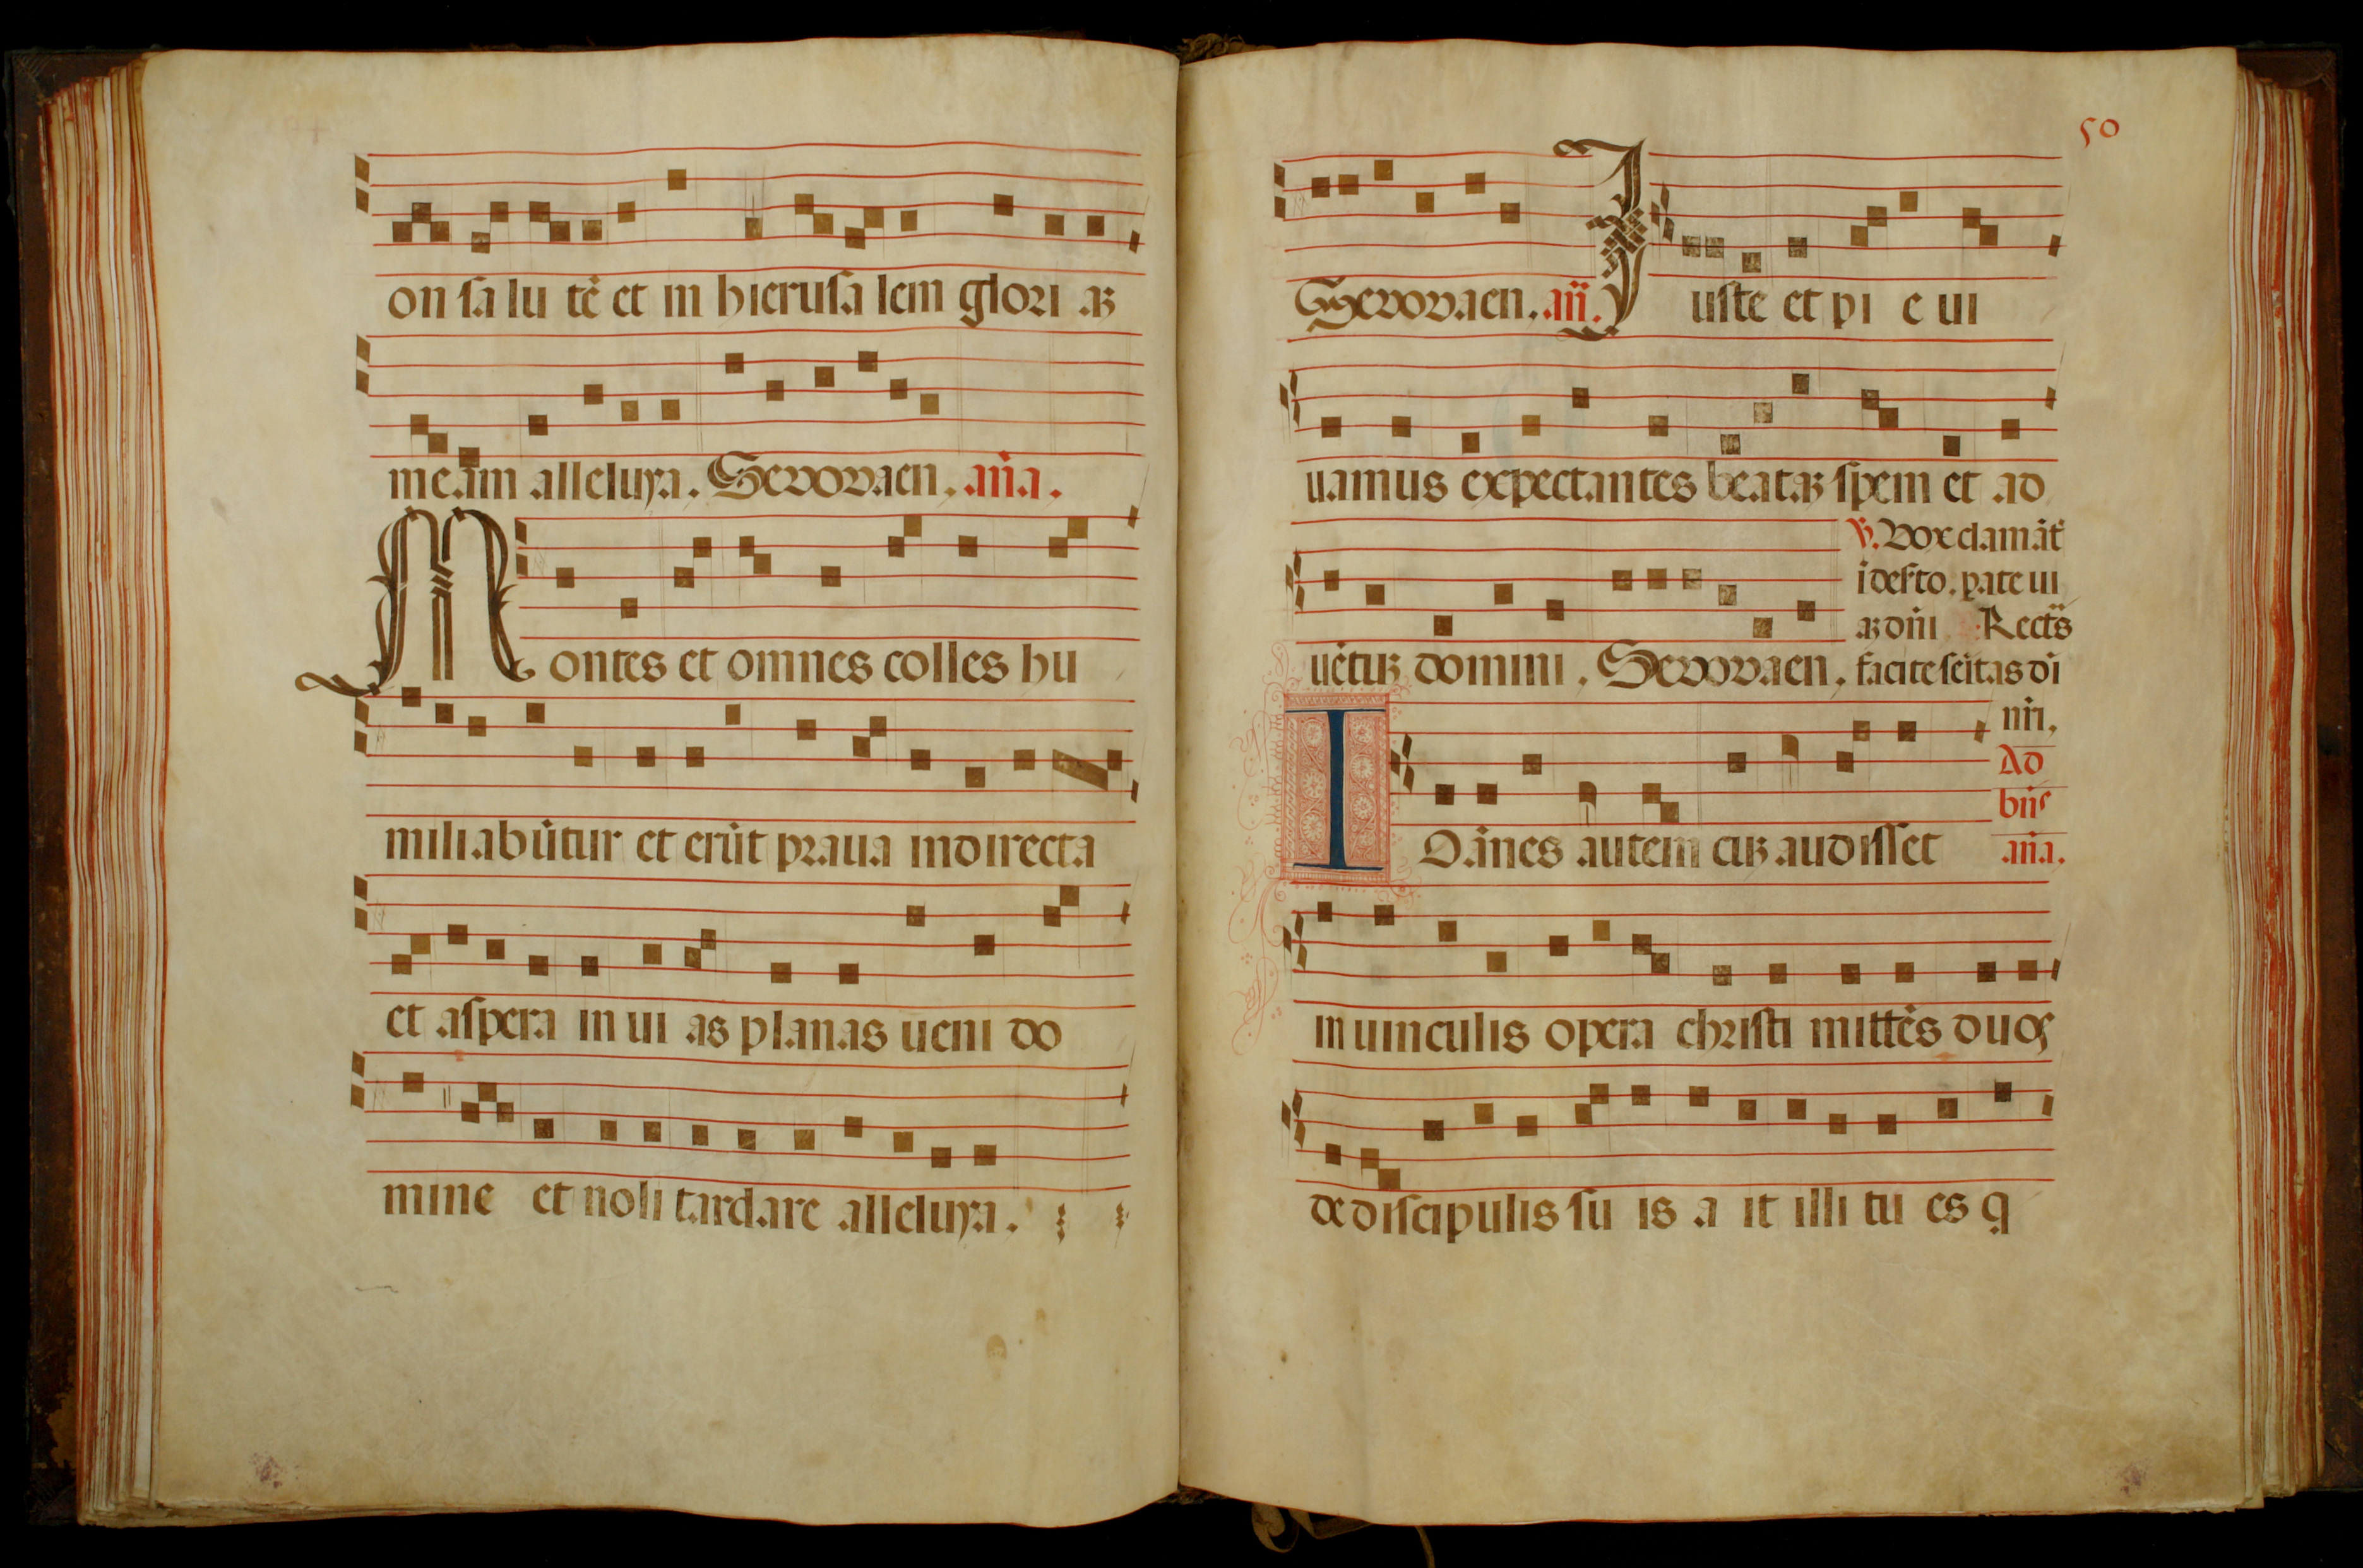 on sa lu tē et in hierusa lem glori aꝫ
meam alleluya. Seuouaen. aña.
Montes et omnes colles hu
miliabūtur et erūt praua indirecta
et aspera in ui as planas ueni do
mine et noli tardare alleluya.
50
Seuouaen. añ. Iuste et pi e ui
uamus expectantes beataꝫ spem et ad
℣. Vox clamāt
ī deſto. parate ui
aꝫ dñi Rectas
uētuꝫ domini. Seuouaen. facite ſeītas di
nr̄i.
Ad
bñs
aña.
IOānes autem cuꝫ audisset
in uinculis opera christi mittēs duos
de discipulis su is a it illi tu es q